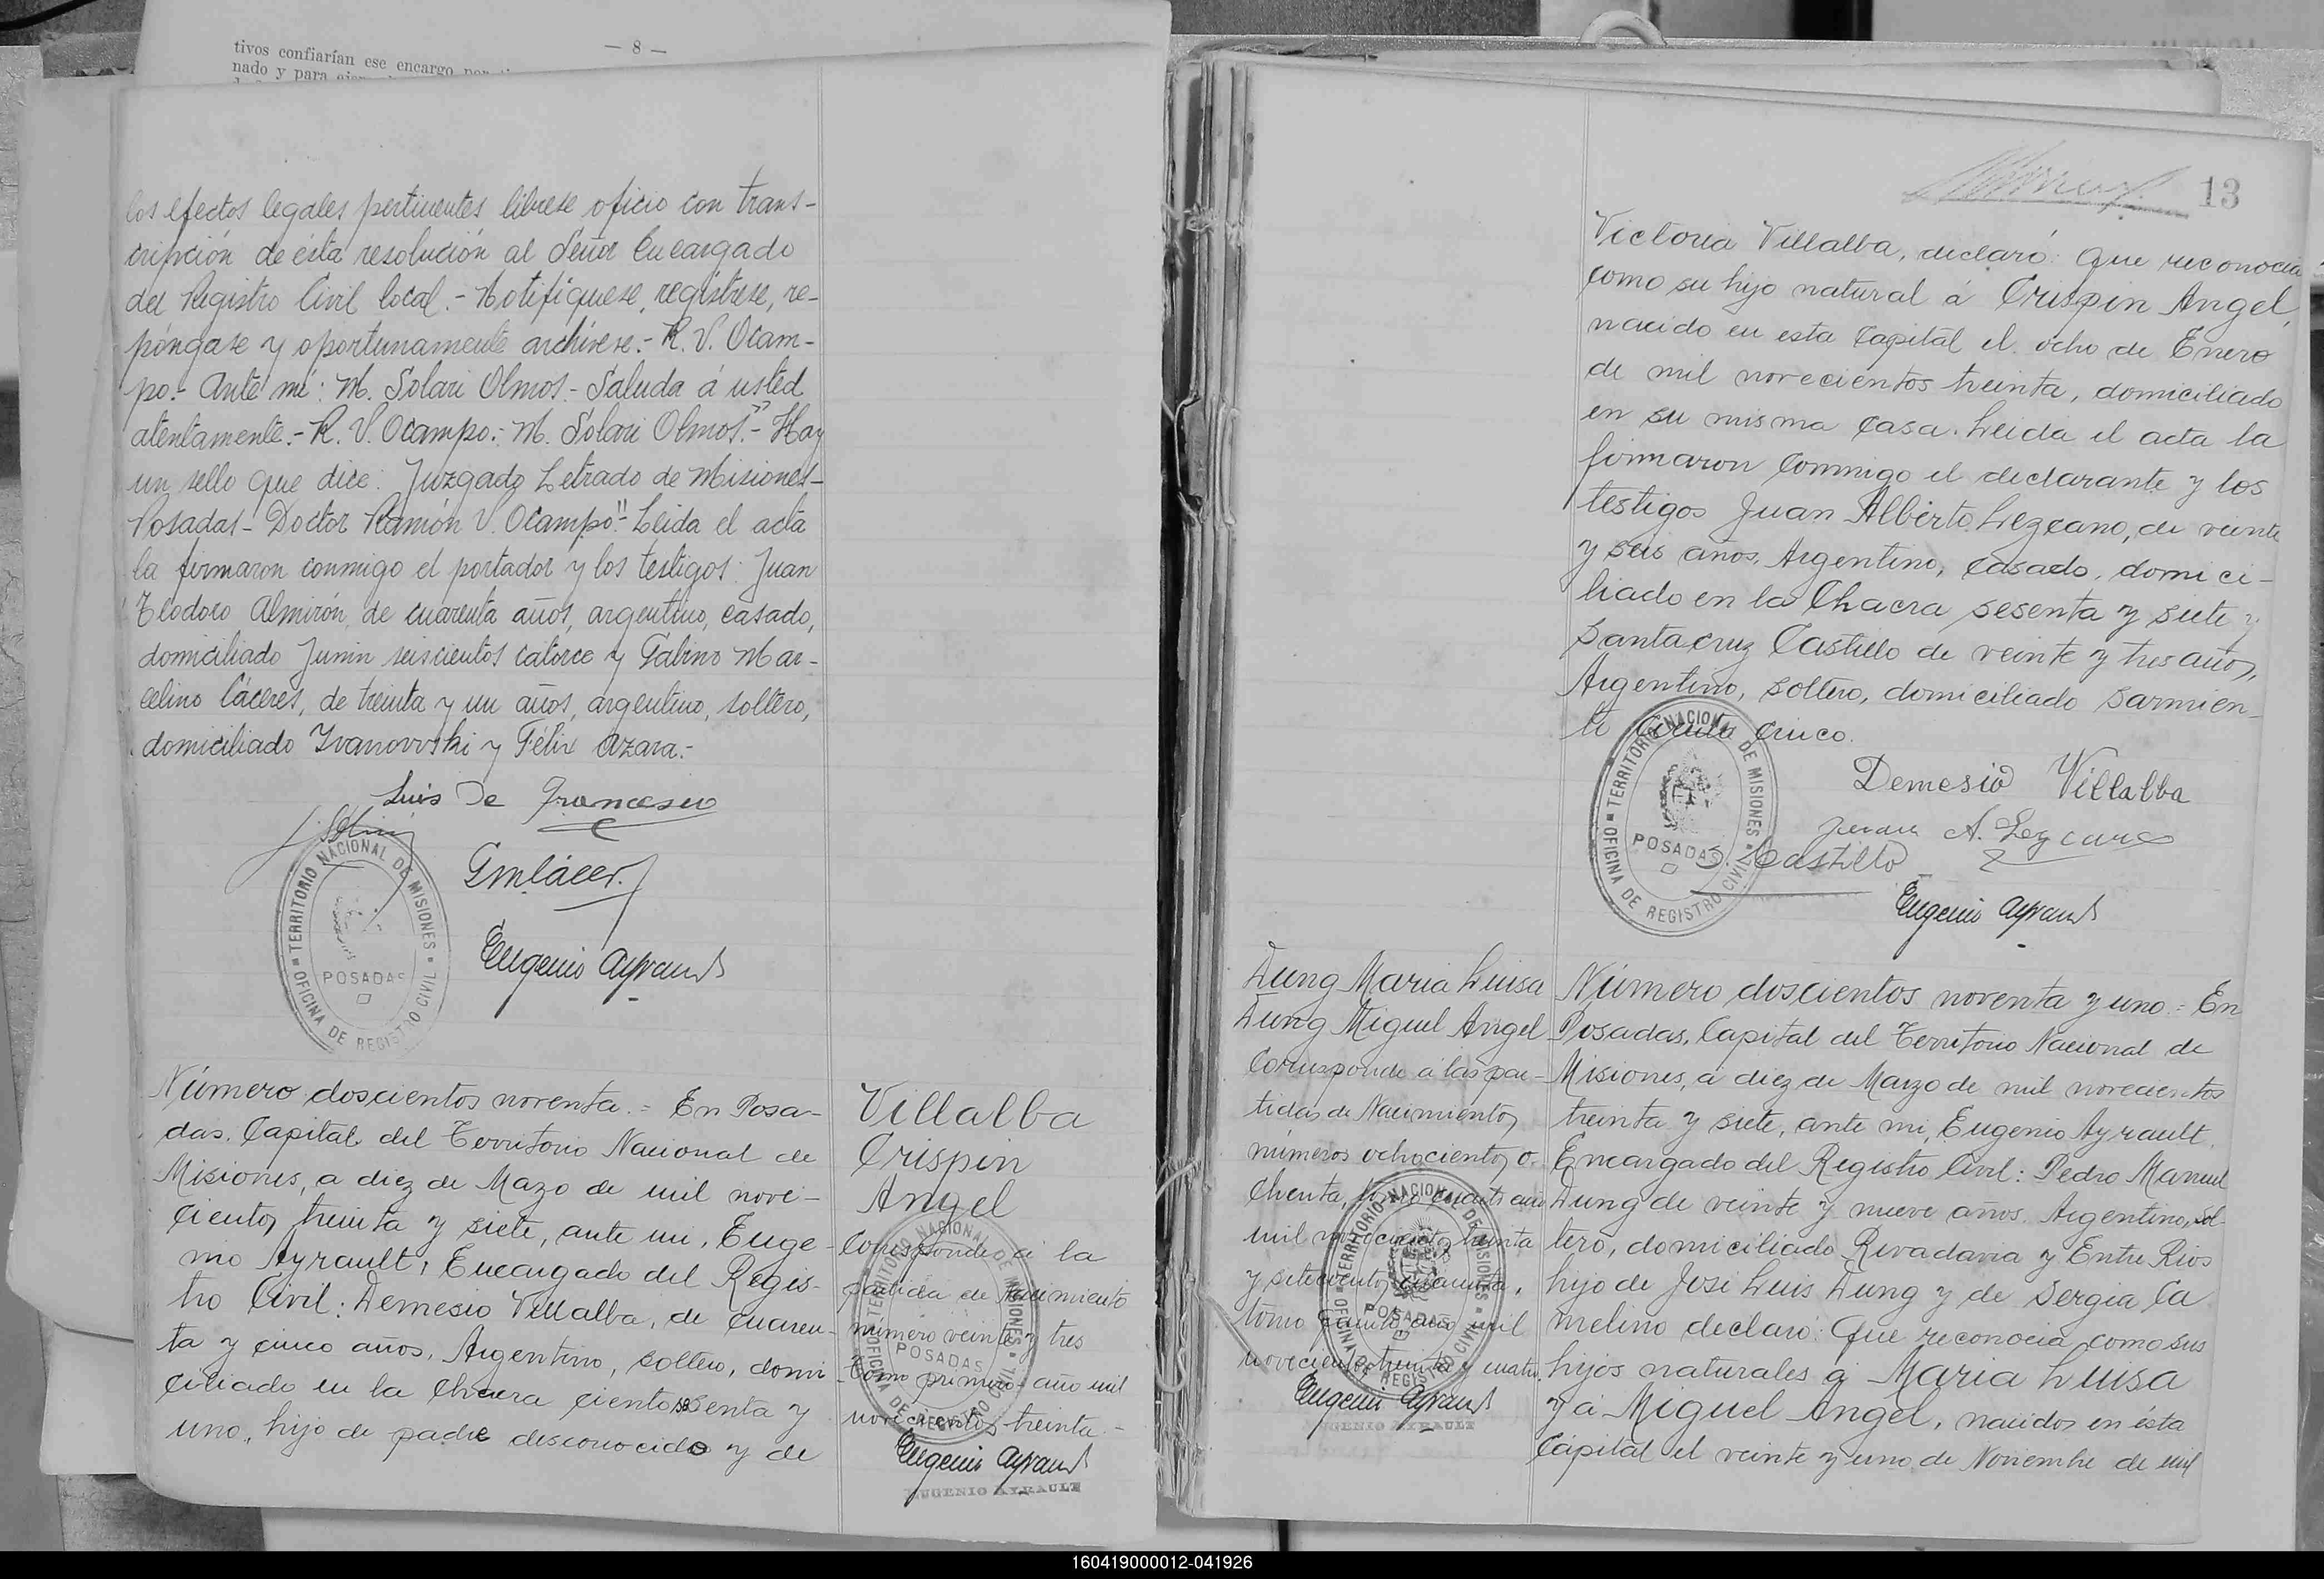 tivos confiarían ese encargo por
— 8 —
nado y para
los efectos legales pertinentes líbrese oficio con trans-
cripción de ésta resolución al Señor Encargado
del Registro Civil local.- Notifíquese, regístrese, re-
póngase y oportunamente archívese.- R. V. Ocam-
po.- Ante mí: M. Solari Olmos.- Saluda á usted
atentamente.- R. V. Ocampo.- M. Solari Olmos."- Hay
un sello que dice: Juzgado Letrado de Misiones-
Posadas- Doctor Ramón V. Ocampo".- Leída el acta
la firmaron conmigo el portador y los testigos: Juan
Teodoro Almirón, de cuarenta años, argentino, casado,
domiciliado Junin seiscientos catorce y Gabino Mar-
celino Cáceres, de treinta y un años, argentino, soltero,
domiciliado Ivanovvski y Félix Azara.-
Luis De Francesco
GmCácer.
Eugenio Ayrault
TERRITORIO NACIONAL DE MISIONES
POSADAS
OFICINA DE REGISTRO CIVIL
Número doscientos noventa.= En Posa-
das, Capital del Territorio Nacional de
Misiones, a diez de Mazo de mil nove-
cientos treinta y siete, ante mi, Euge-
nio Ayrault, Encargado del Regis-
tro Civil: Demesio Villalba, de cuaren-
ta y cinco años, Argentino, soltero, domi
ciliado en la Chacra ciento sesenta y
uno, hijo de padre desconocido y de
Villalba
Crispin
Angel
Corresponde á la
partida de Nacimiento
número veinte y tres
tomo primero año mil
novecientos treinta.-
Eugenio Ayrault
EUGENIO AYRAULT
TERRITORIO NACIONAL DE MISIONES
POSADAS
OFICINA DE REGISTRO CIVIL
13
Victoria Villalba, declaró: Que reconocia
como su hijo natural á Crispin Angel,
nacido en esta Capital el ocho de Enero
de mil novecientos treinta, domiciliado
en su misma casa. Leida el acta la
firmaron conmigo el declarante y los
testigos Juan Alberto Lezcano, de veinte
y seis años, Argentino, casado, domici-
liado en la Chacra sesenta y siete y
Santacruz Castillo de veinte y tres años,
Argentino, soltero, domiciliado Sarmien-
to cinco.
Demesio Villalba
Juan A. Lezcano
S. Castillo
Eugenio Ayrault
TERRITORIO NACIONAL DE MISIONES
POSADAS
OFICINA DE REGISTRO CIVIL
Dung Maria Luisa
Dung Miguel Angel
Corresponde á las par-
tidas de Nacimientos
números ochocientos o-
chenta, tomo cuarto año
mil novecientos treinta
y setecientos cuarenta,
tomo cuarto año mil
novecientos treinta y cuatro
Eugenio Ayrault
EUGENIO AYRAULT
TERRITORIO NACIONAL DE MISIONES
POSADAS
OFICINA DE REGISTRO CIVIL
Número doscientos noventa y uno.= En
Posadas, Capital del Territorio Nacional de
Misiones, á diez de Marzo de mil novecientos
treinta y siete, ante mi, Eugenio Ayrault,
Encargado del Registro Civil: Pedro Manuel
Dung de veinte y nueve años, Argentino, sol-
tero, domiciliado Rivadavia y Entre Rios
hijo de José Luis Dung y de Sergia Ca
melino declaró: Que reconocia como sus
hijos naturales á Maria Luisa
y á Miguel Angel, nacidos en ésta
Capital el veinte y uno de Noviembre de mil
160419000012-041926